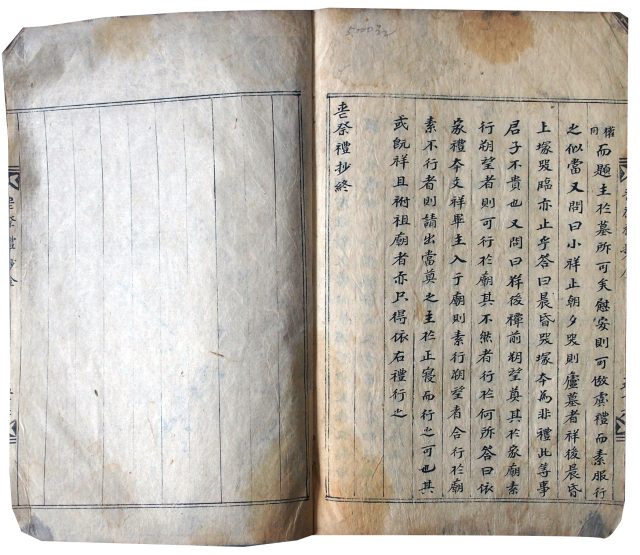 權用而題主於墓所可矣慰安則可倣虞禮而素服行
之似當又問曰小祥止朝夕哭則廬墓者祥後晨昏
上塚哭臨亦止乎答曰晨昏哭塚本為非禮此等事
君子不貴也又問曰祥後禫前朔望奠其於家廟素
行朔望者則可行於廟其不然者行於何所答曰依
家禮本文祥畢主入于廟則素行朔望者合行於廟
素不行者則請出當奠之主於正寢而行之可也其
或既祥且祔祖廟者亦只得依右禮行之
喪祭禮抄終
喪祭禮抄全